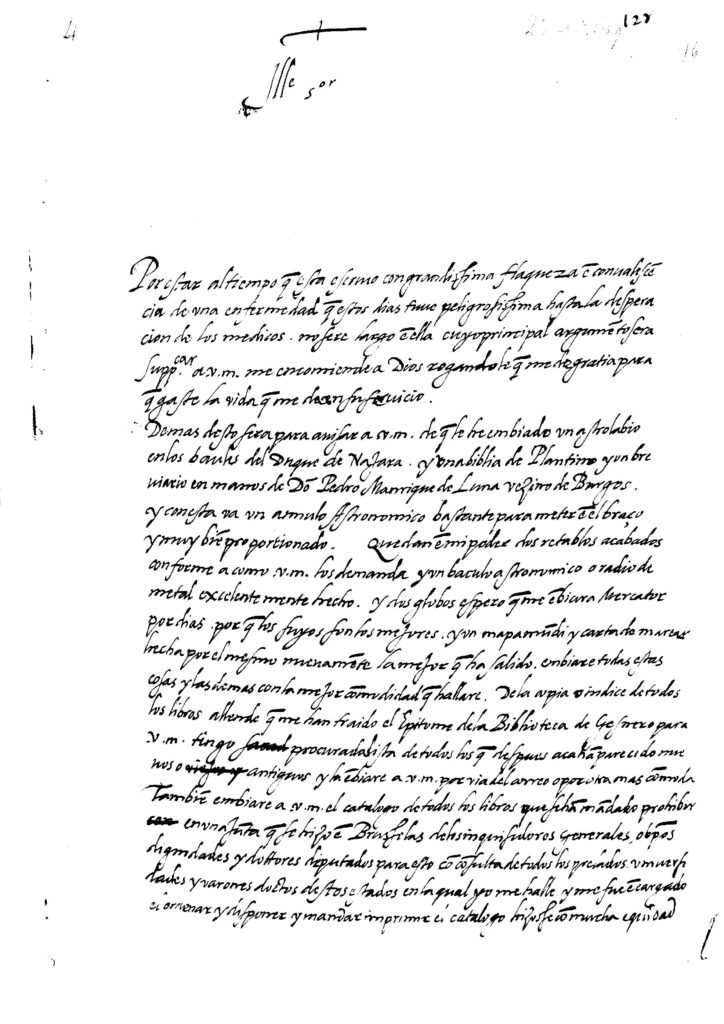 4
128
16
Ille
sor
Por estar al tiempo q̃ esta escriuo con grandissima flaqueza ẽ conualescẽ
cia de vna enfermedad q̃ estos dias tuue peligrosissima hasta la despera
cion de los medicos. no sere largo ẽ ella cuyo principal argumento sera
suppcar a v.m. me encomiende a Dios rogandole q̃ me de gratia para
q̃ gaste la vida q̃ me de en su seruicio.
Demas desto sera para auisar a v.m. de q̃ le he embiado vn astrolabio
en los baules del Duque de Najara. y vna biblia de Plantino y vn bre
uiario en manos de Dõ Pedro Manrique de Luna vezino de Burgos.
y con esta va vn annulo Astronomico bastante para meter ẽ el braço
y muy biẽ proporcionado. Quedan ẽ mi poder dos retablos acabados
conforme a como v.m. los demanda y vn baculo astronomico o radio de
metal excelentemente hecho. y dos globos espero q̃ me ẽbiara Mercator
por dias. por q̃ los suyos son los mejores. y vn mapamũdi y carta de marear
hecha por el mesmo nueuamẽte la mejor q̃ ha salido. embiare todas estas
cosas y las demas con la mejor cõmodidad q̃ hallare. De la copia o indice de todos
los libros allende q̃ me han traido el Epitome de la Biblioteca de Gesnero para
v.m. tengo procurada lista de todos los q̃ despues aca hã parecido nue
uos o antiguos y la ẽbiare a v.m. por via del correo o por otra mas cõmoda
Tambiẽ embiare a v.m. el catalogo de todos los libros que se hã mãdado prohibir
en vna jũta q̃ se hizo ẽ Bruselas de los inquisidores generales, obp̃os
dignidades y dottores deputados para esto cõ cõsulta de todos los prelados vniuersi
dades y varones doctos destos estados en la qual yo me halle y me fue ẽcargado
el ordenar y disponer y mandar imprimir el catalogo hizose cõ mucha equidad